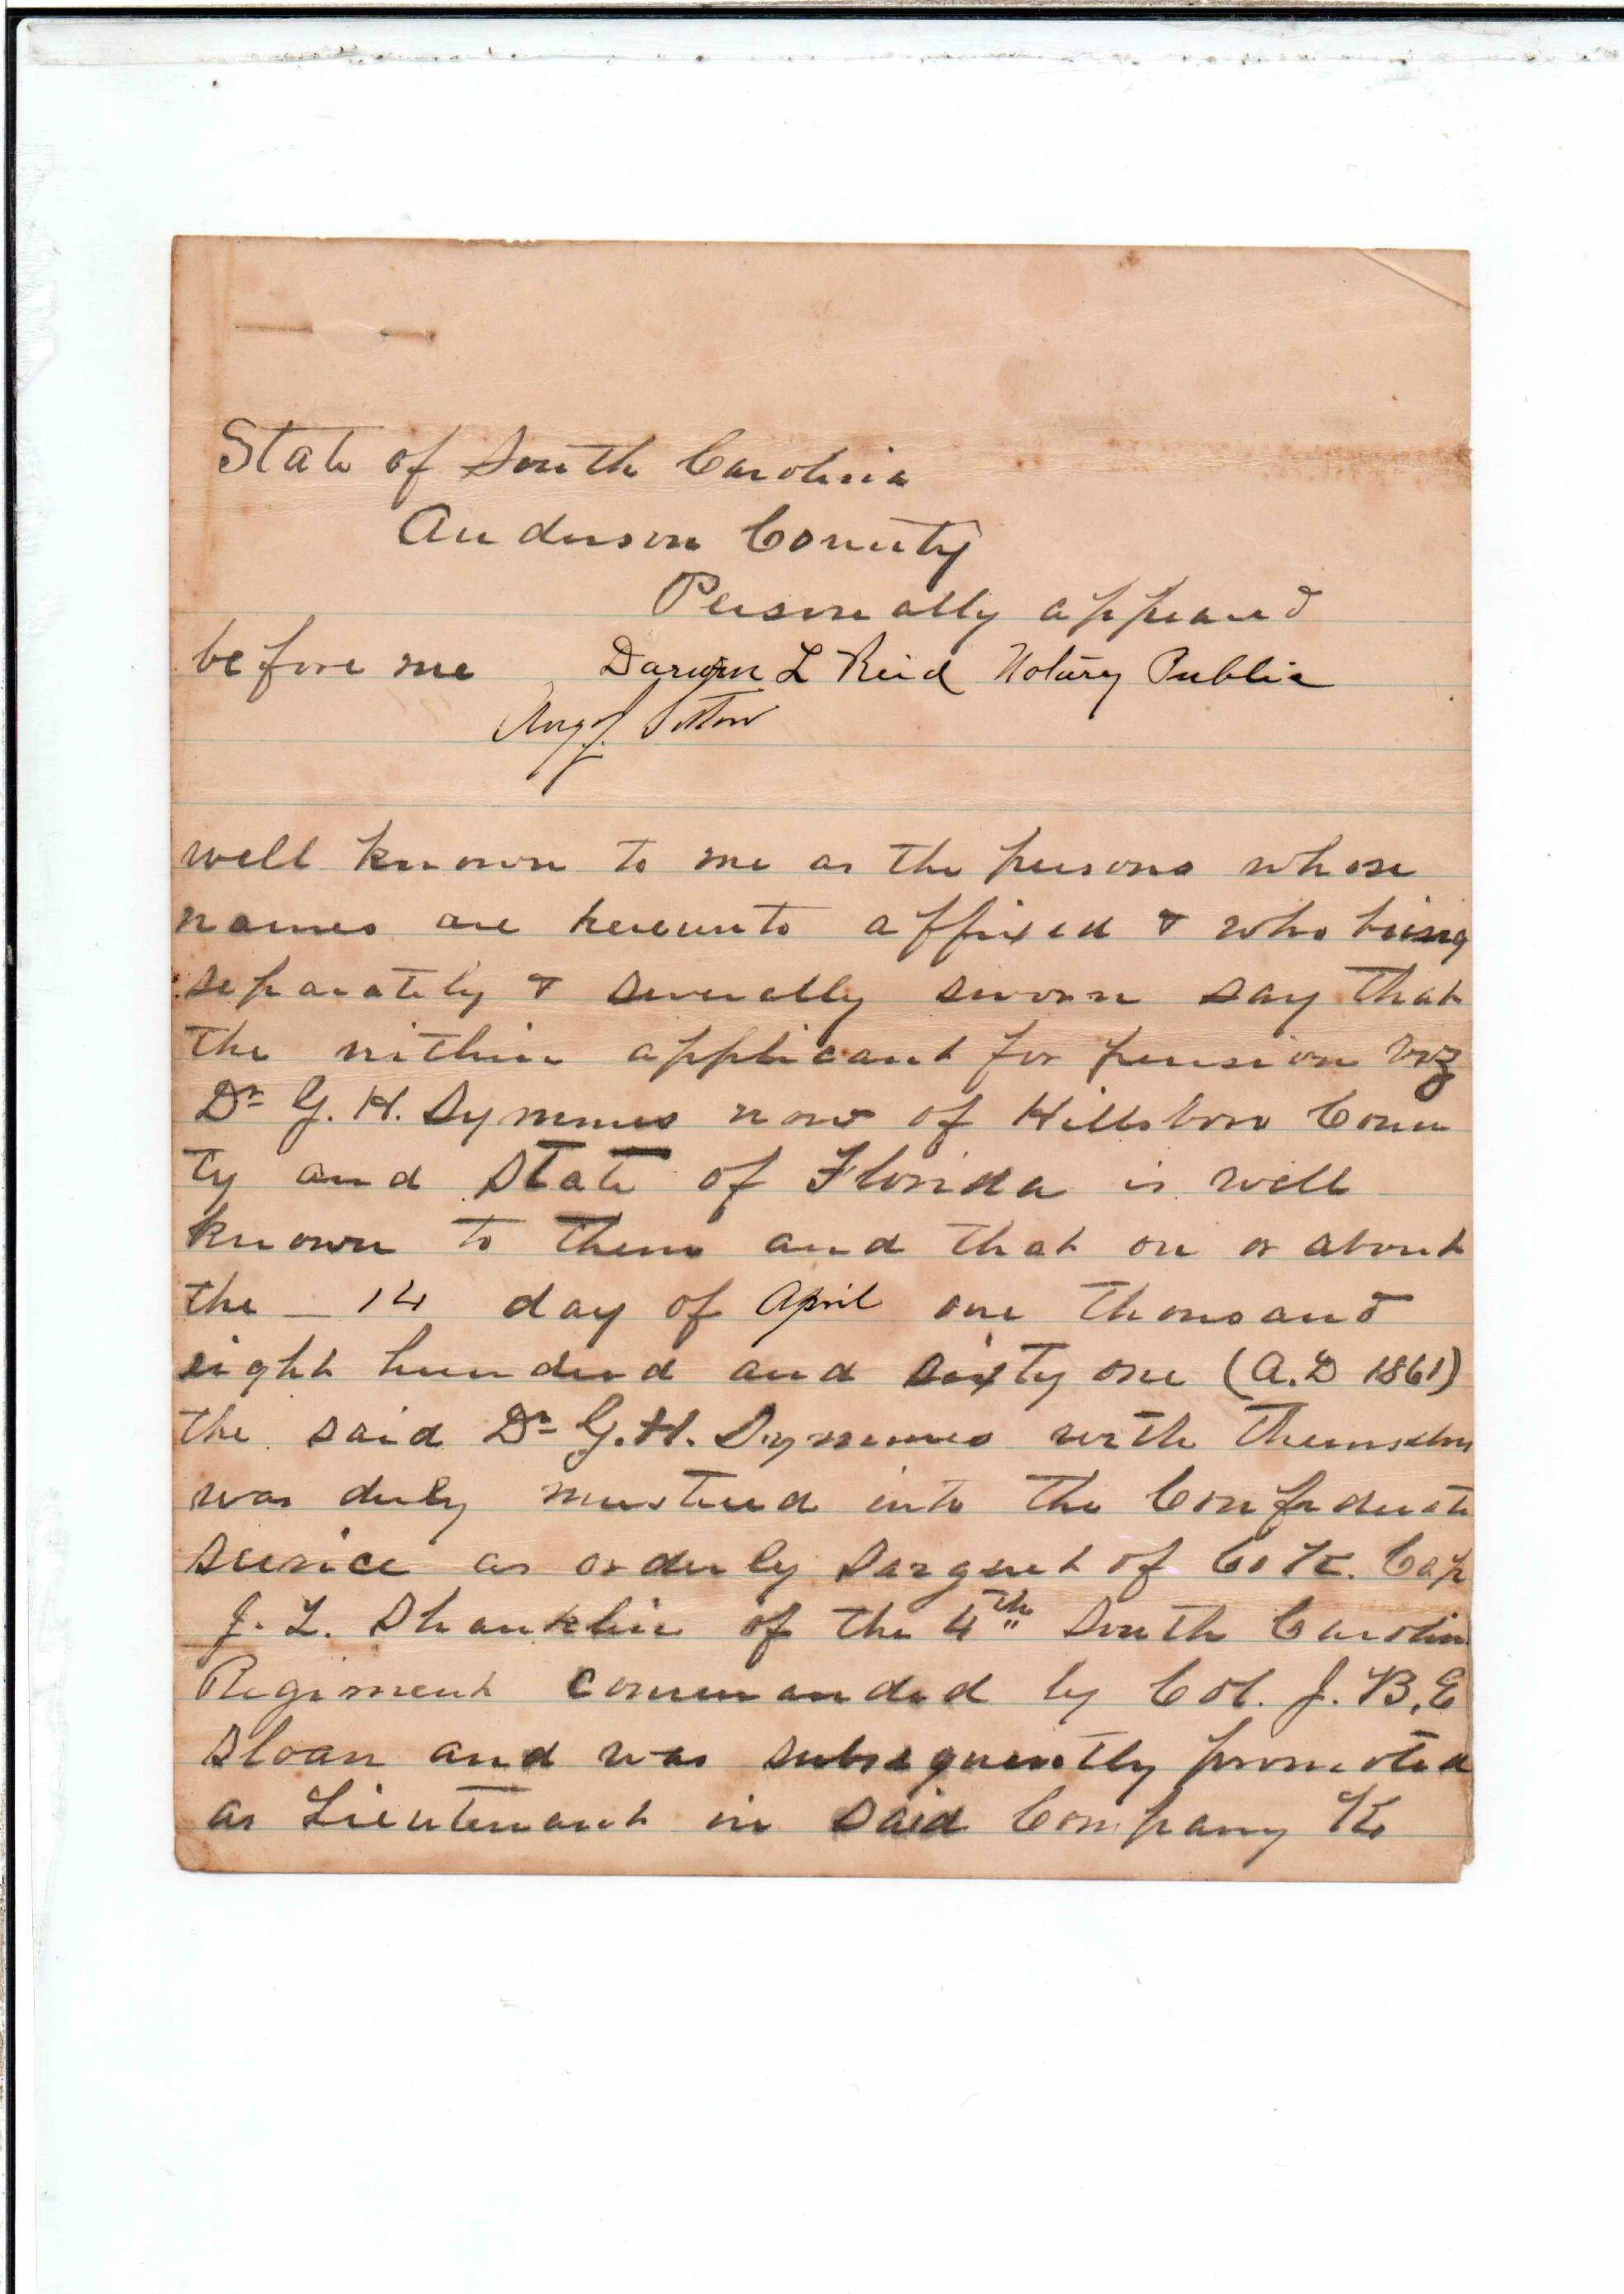 State of South Carolina
Anderson County
Personally appeared
before me Darwin L Reid Notary Public
Aug J. Sitton
well known to me as the persons whose
names are hereunto affixed & who being
separately & severally sworn say that
the within applicant for pension viz
Dr G. H. Symmes now of Hillsboro Coun
ty and State of Florida is well
known to them and that on or about
the 14 day of April one thousand
eight hundred and sixty one (A.D 1861)
the said Dr G. H. Symmes with themselves
was duly mustered into the Confederate
service as orderly Sargent of Co K. Cap
J. L. Shanklin of the 4th South Carolina
Regiment commanded by Col. J. B. E
Sloan and was subsequently promoted
as Lieutenant in said Company K